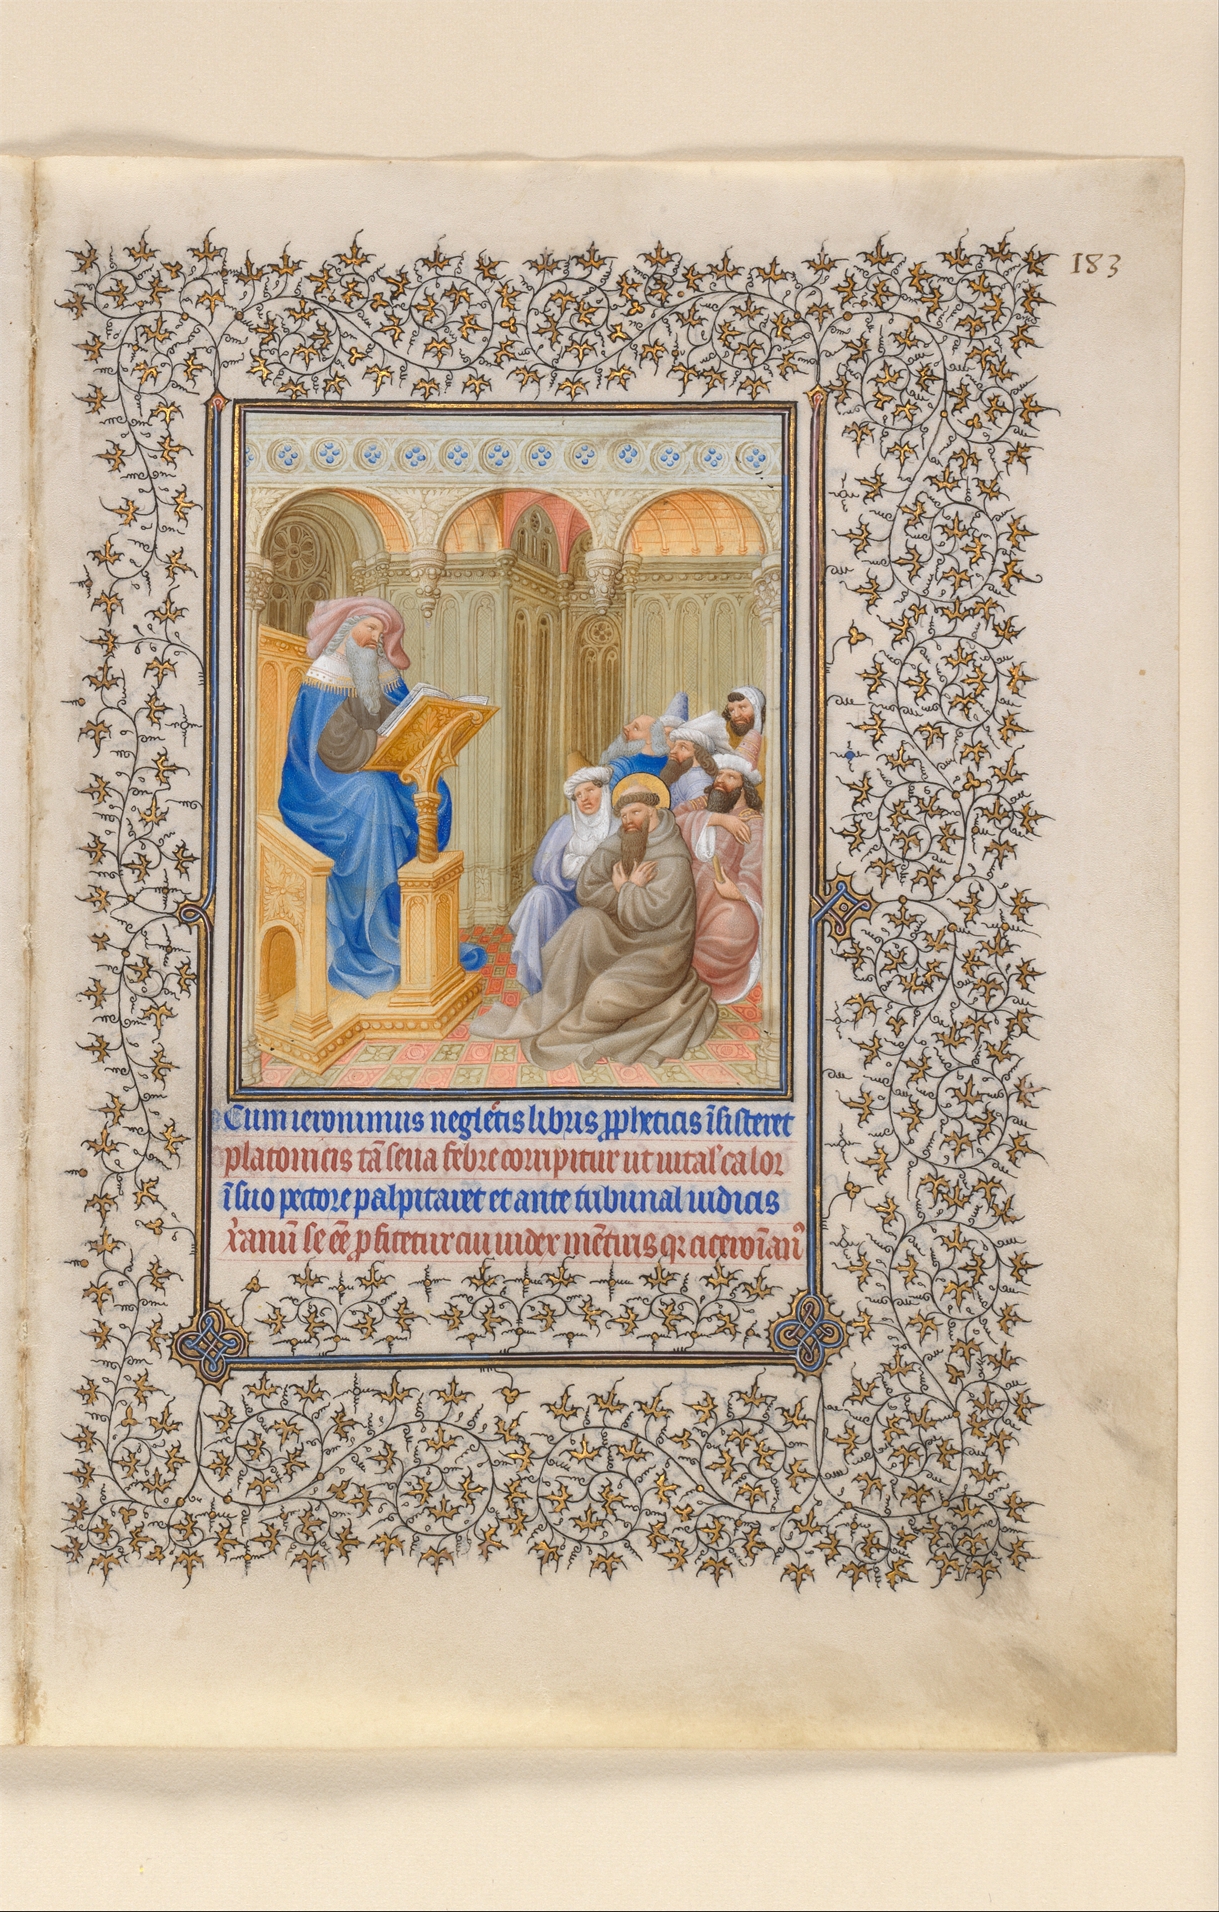 183
Cum ieronimus neglẽtis libris ꝓpheticis ĩsisteret
platonicis tã seua febre corripitur ut uitaľ calor
ĩ suo pectore palpitaret et ante tribunal iudicis
xp̃ianũ se eẽ ꝓfitetur cui iudex mẽtiris qꝛ ciceroĩanꝰ